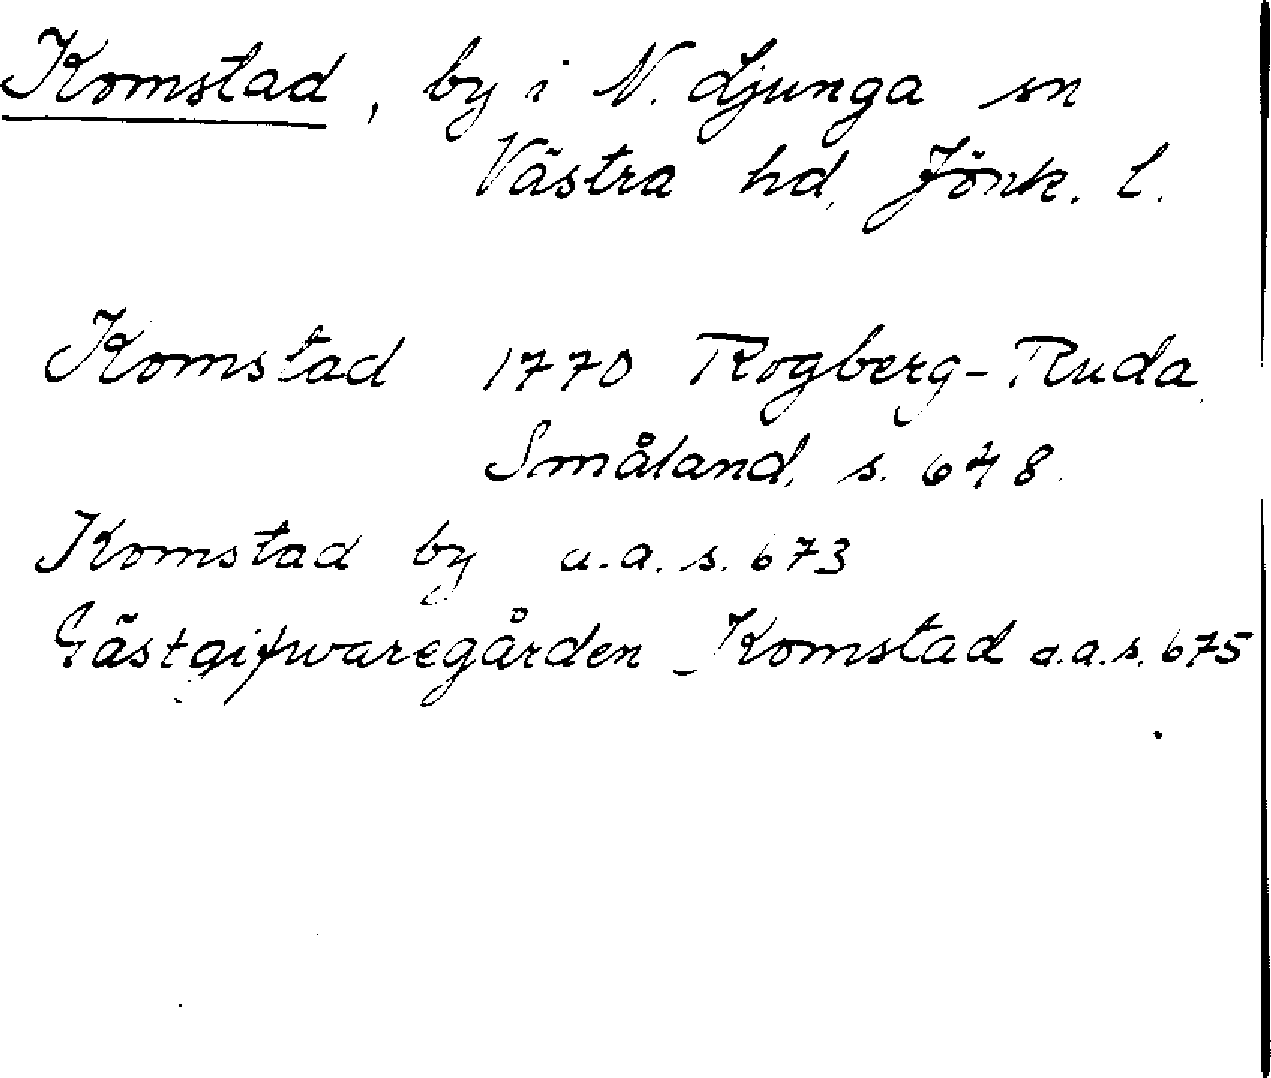 Komstad, by i N. Ljunga sn
Västra hd, Jönk. l.
Komstad 1770 Rogberg-Ruda,
Småland, s. 648.
Komstad by a.a. s. 673
Gästgifwaregården Komstad a.a. s. 675